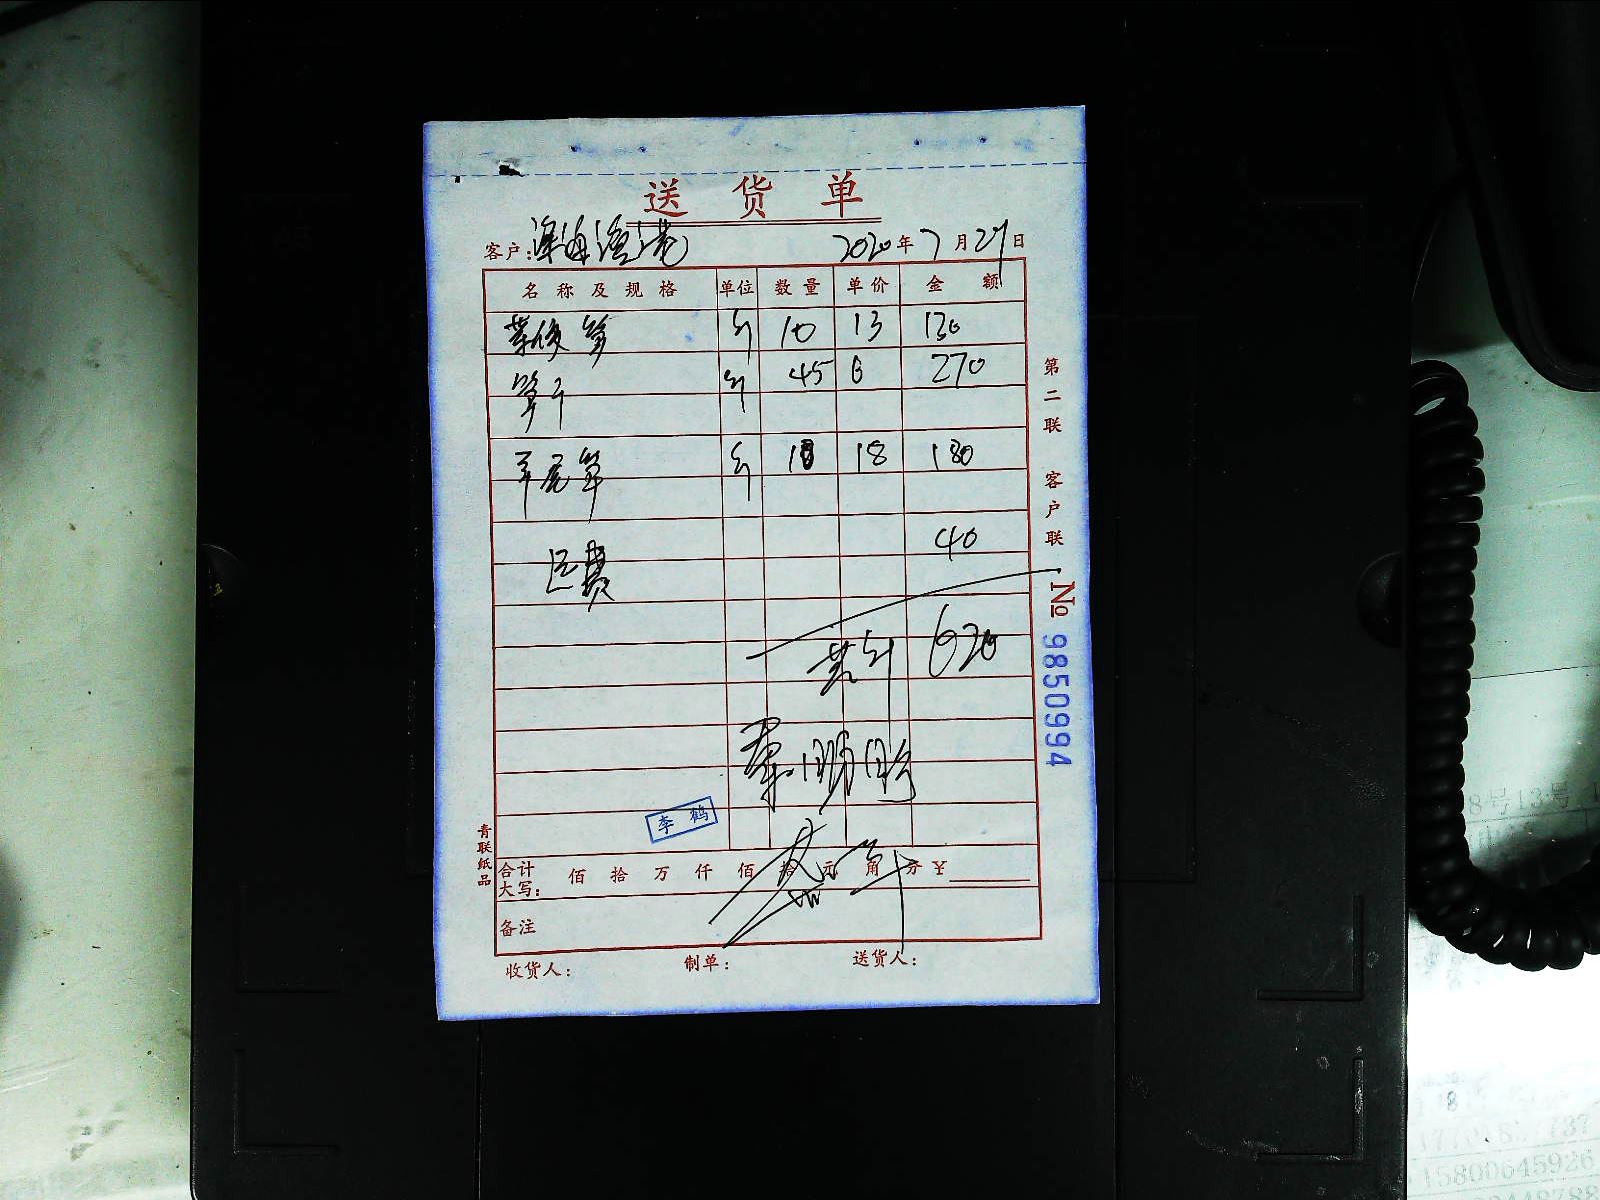 送货单
客户: 深海渔港 2020年7月27日
名称及规格 单位 数量 单价 金额
斤 10 13 130
笋干 斤 45 6 270
羊尾笋 斤 10 18 180
运费 40
共计 620
李鹤
合计大写: 佰 拾 万 仟 佰 拾 元 角 分 ¥
备注
收货人: 制单: 送货人:
第二联 客户联
№ 9850994
青联纸品
8号13号
15800645926